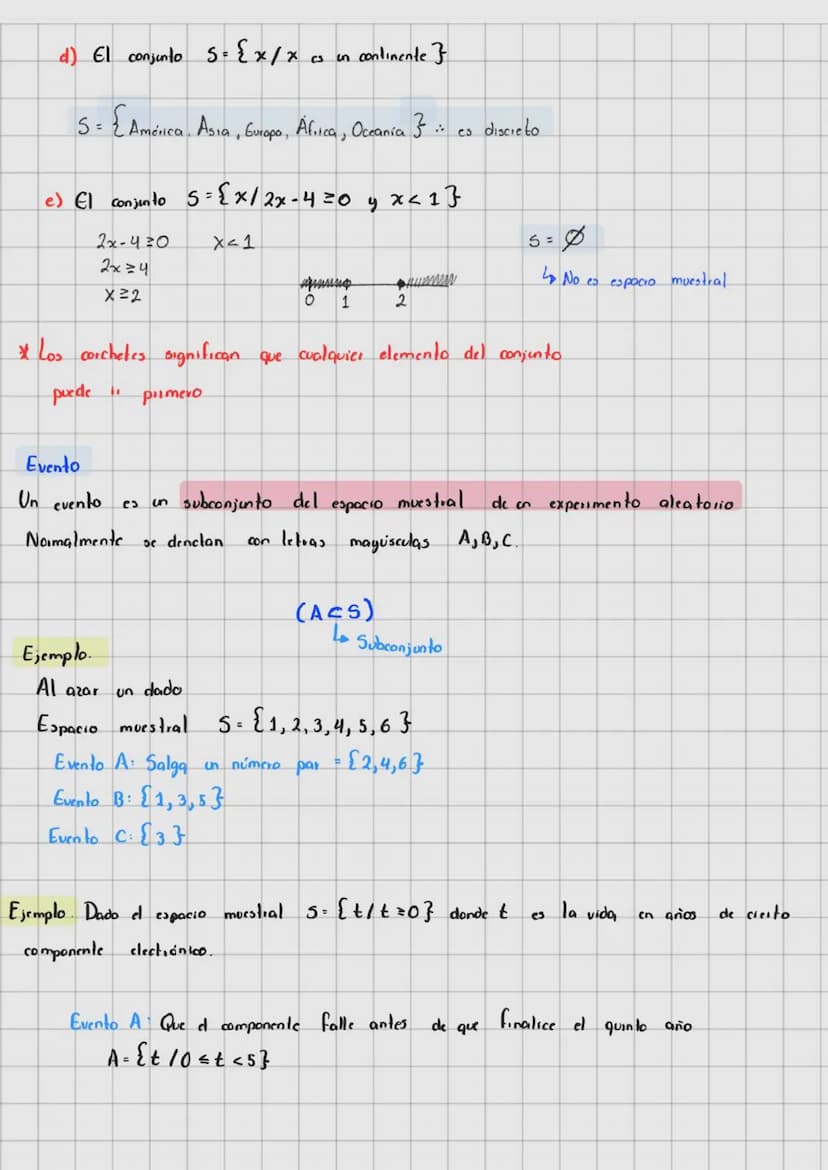 d) El conjunto S = { x / x es un continente }
S = { América, Asia, Europa, África, Oceanía } ∴ es discreto
e) El conjunto S = { x / 2x - 4 ≥ 0 y x < 1 }
2x - 4 ≥ 0 x < 1 S = ∅
2x ≥ 4 ↳ No es espacio muestral
x ≥ 2 0 1 2
* Los corchetes significan que cualquier elemento del conjunto
puede ir primero
Evento
Un evento es un subconjunto del espacio muestral de un experimento aleatorio
Normalmente se denotan con letras mayúsculas A, B, C.
(A ⊂ S)
↳ Subconjunto
Ejemplo.
Al azar un dado
Espacio muestral S = { 1, 2, 3, 4, 5, 6 }
Evento A: Salga un número par = { 2, 4, 6 }
Evento B: { 1, 3, 5 }
Evento C: { 3 }
Ejemplo. Dado el espacio muestral S = { t / t ≥ 0 } donde t es la vida, en años de cierto
componente electrónico.
Evento A: Que el componente falle antes de que finalice el quinto año
A = { t / 0 ≤ t < 5 }